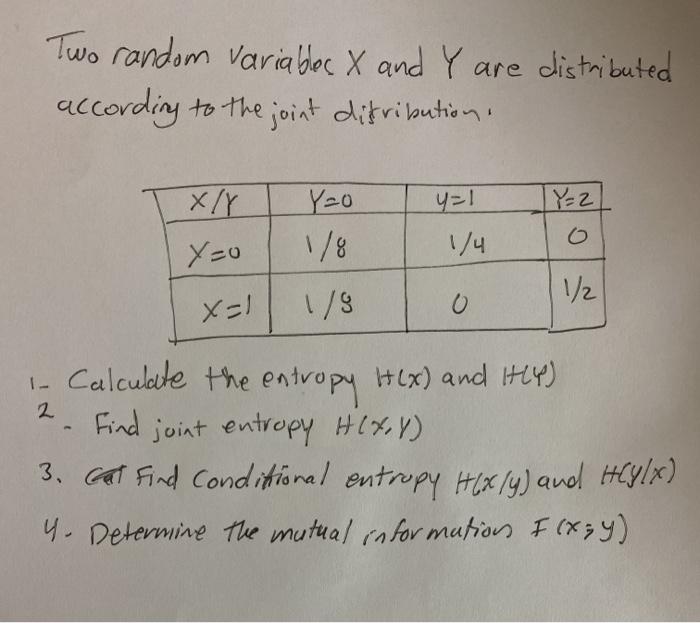 Two random variables X and Y are distributed
according to the joint ditribution.
X/Y Y=0 y=1 Y=2
X=0 1/8 1/4 0
X=1 1/8 0 1/2
1- Calculate the entropy H(x) and H(y)
2- Find joint entropy H(X,Y)
3. Find Conditional entropy H(x/y) and H(y/x)
4- Determine the mutual information I (x;y)